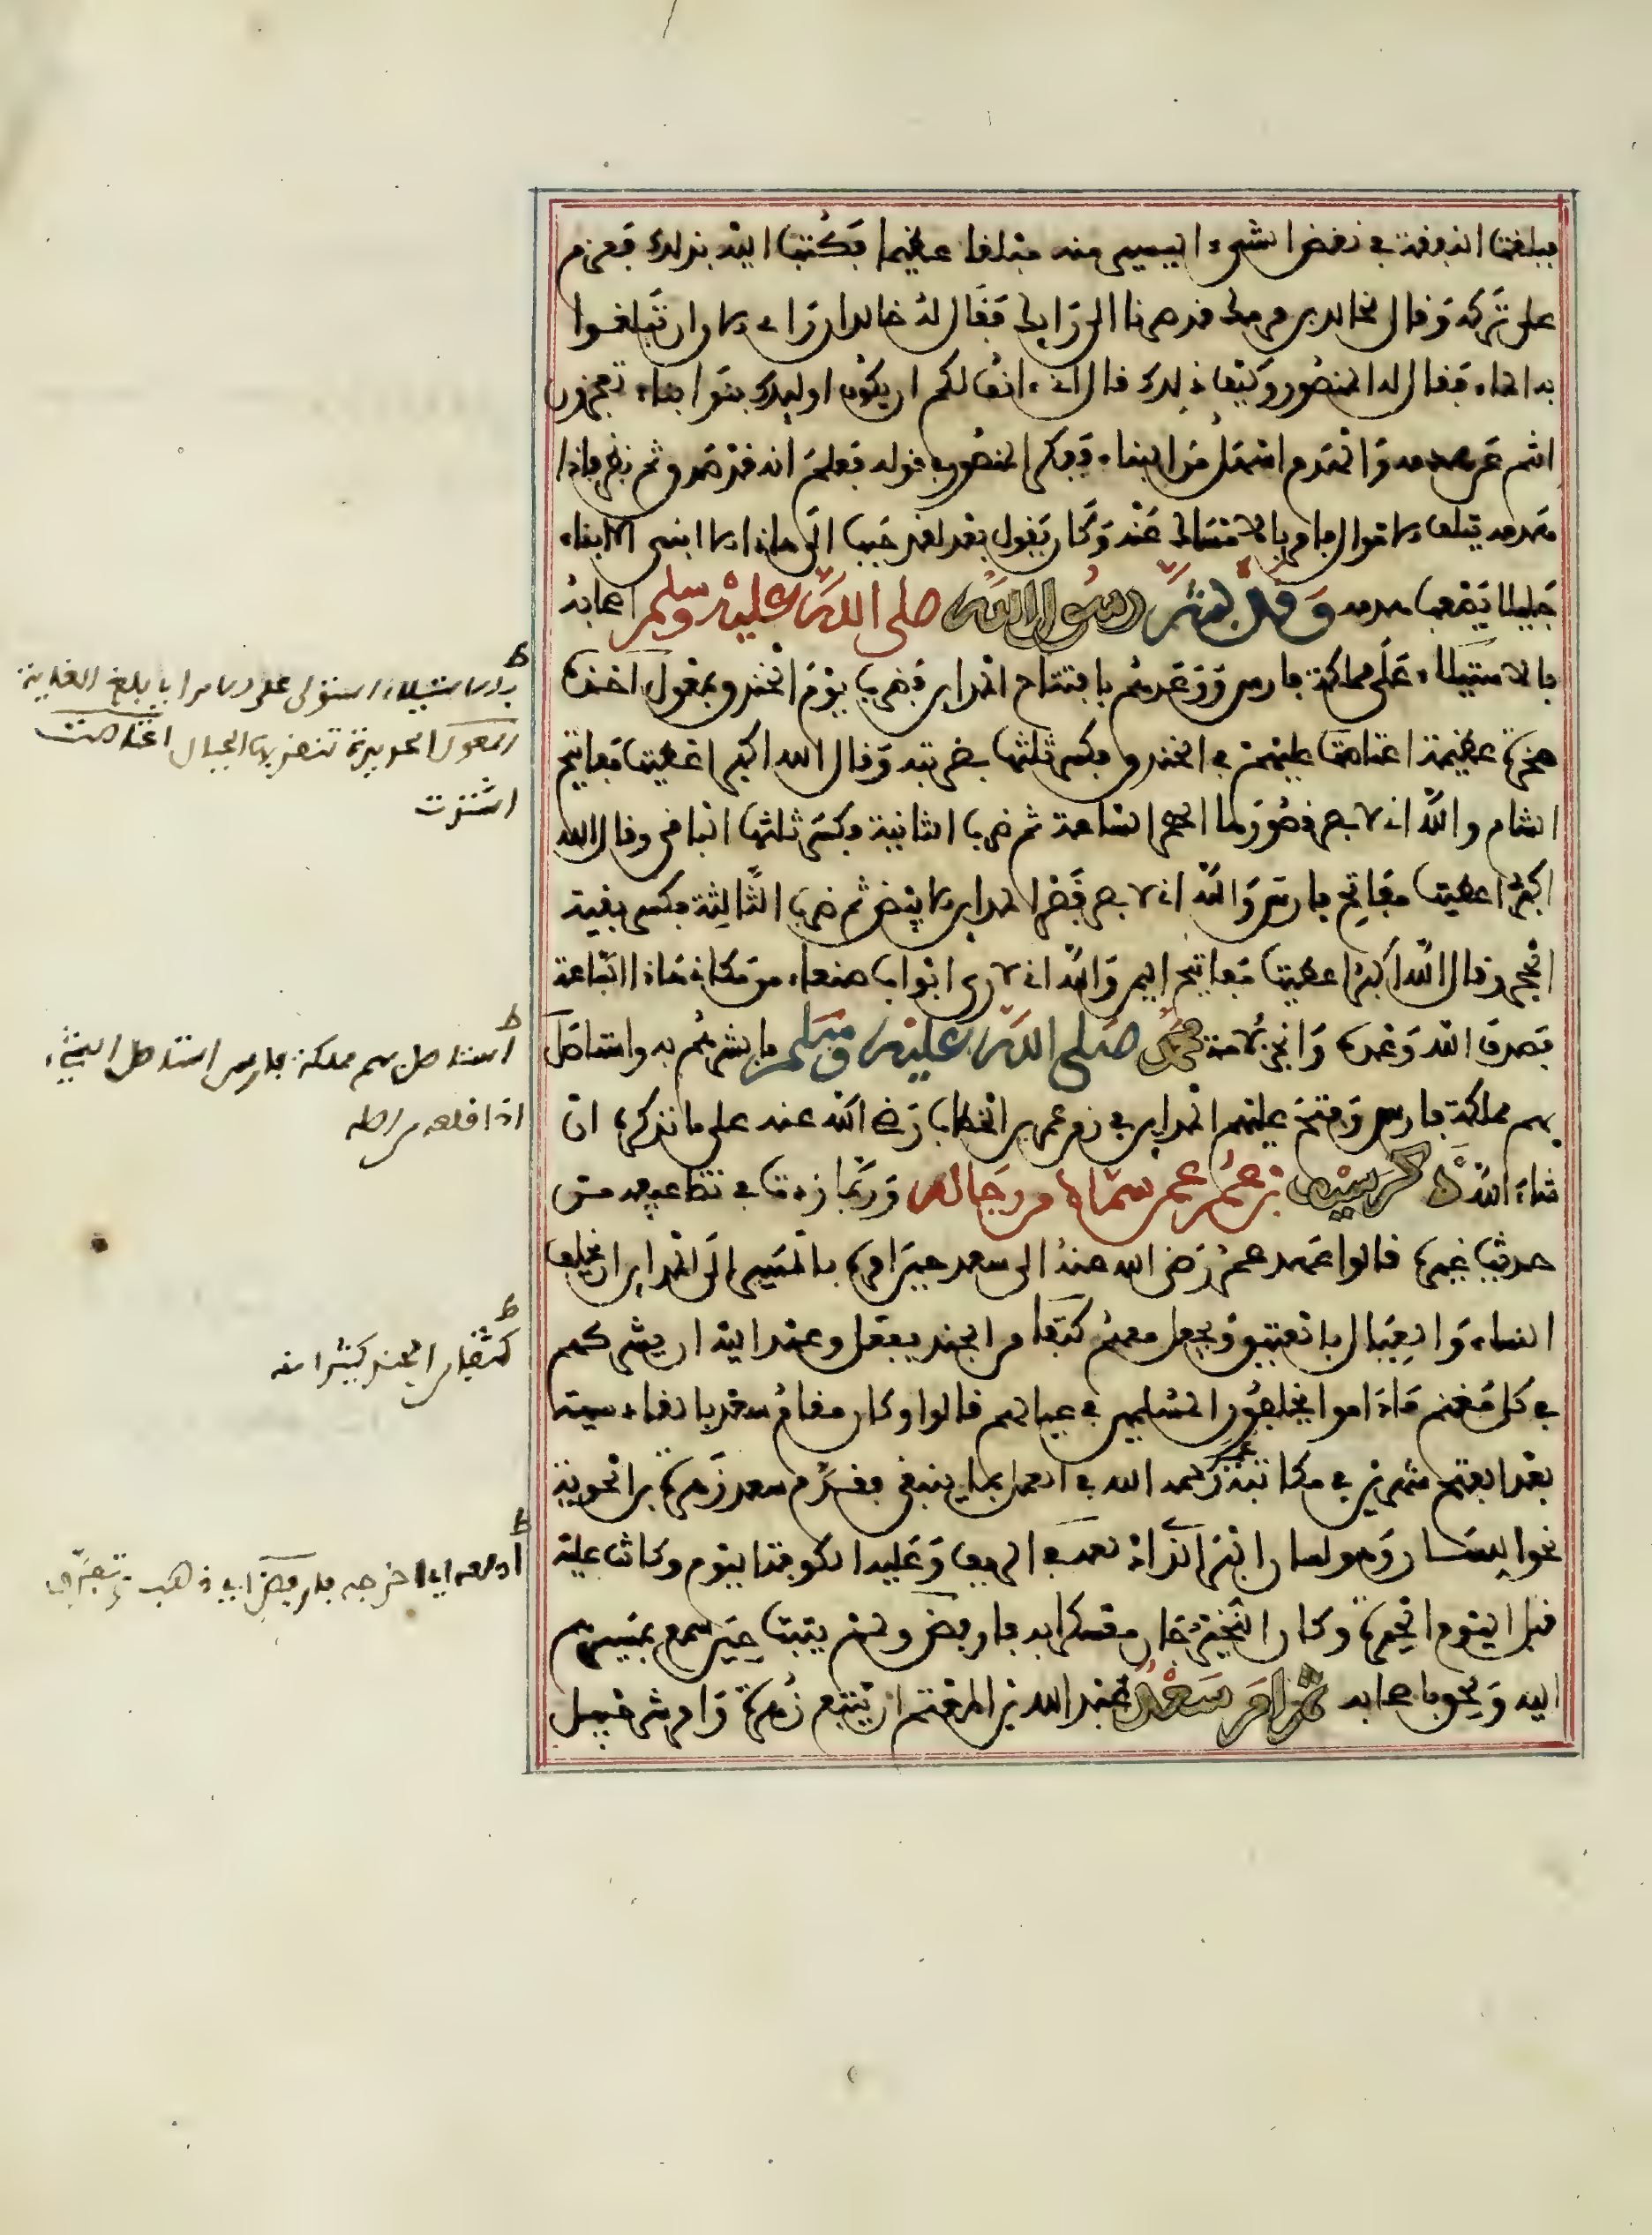 فبلغت النفقة في نقض الشيء اليسير منه مبلغا عظيما فكتب اليه بذلك فعزم
على تركه وقال لخالد بن برمك قد صرنا الى رايك فقال له خالد ان راي الان ان تبلغوا
به الماء فقال له المنصور وكيف ذلك قال اني انف لكم ان يكون اوليك بنوا بناء تعجزون
انتم عن هدمه والهدم اسهل من البناء ففكر المنصور في قوله فعلم انه قد صدق ثم نظر فاذا
هدمه يتلف الاموال فامر بالامساك عنه وكان يقول بعد لقد حبب الي هاذا الا ابني الا بناء
جليلا يصعب هدمه وقد بشر رسول الله صلى الله عليه وسلم اصحابه
بالاستيلاء على مملكة فارس ووعدهم بافتتاح المداين فضرب يوم الخندق بمعول اخذه
صخرة عظيمة اعتاصت عليهم في الخندق فكسر ثلثها بضربته وقال الله اكبر اعطيت مفاتيح
الشام والله اني لابصر قصورها الحمر الساعة ثم ضرب الثانية فكسر ثلثها الباقي وقال الله
اكبر اعطيت مفاتيح فارس والله اني لابصر قصر المداين الابيض ثم ضرب الثالثة فكسر بقية
الحجر وقال الله اكبر اعطيت مفاتيح اليمن والله اني لارى ابواب صنعاء من مكاني هاذا الساعة
فصدق الله وعده وانجز لامة محمد صلى الله عليه وسلم ما بشرهم به واستاصل
بهم مملكة فارس وفتح عليهم المداين في زمن عمر بن الخطاب رضي الله عنه على ما نذكره ان
شاء الله ذكر سيف بن عمر عمن سماه من رجاله وربما زدت في تضاعيفه من
حديث غيره قالوا عهد عمر رضي الله عنه الى سعد حين امره بالمسير الى المداين ان يخلف
النساء والعيال بالعتيق ويجعل معهم كثفا من الجند ففعل وعهد اليه ان يشركهم
في كل مغنم ماداموا يخلفون المسلمين في عيالهم قالوا وكان مقام سعد بالقادسية
بعد الفتح شهرين في مكاتبة عمر رحمه الله في العمل بما ينبغي فقدم سعد زهرة بن الحوية
نحو اللسان وهو لسان البر الذي ادلعه في الريف وعليه الكوفة اليوم وكانت عليه
قبل اليوم الحيرة وكان النخيرجان معسكرا به فارفض ولم يثبت حين سمع بمسيرهم
اليه ولحق باصحابه ثم امر سعد عبد الله بن المعتم ان يتبع زهرة وامر شرحبيل
ط
بالاستيلاء استولى على الامر اي بلغ الغاية
المعول الحديدة تنقر بها الجبال اعتاصت
اشتدت
ط
استاصل بهم مملكة فارس استاصل الشيء
اذا قلعه من اصله
ط
كثفا من الجند كثيرا منه
ط
ادلعه اي اخرجه فارفض اي ذهب وتفرق